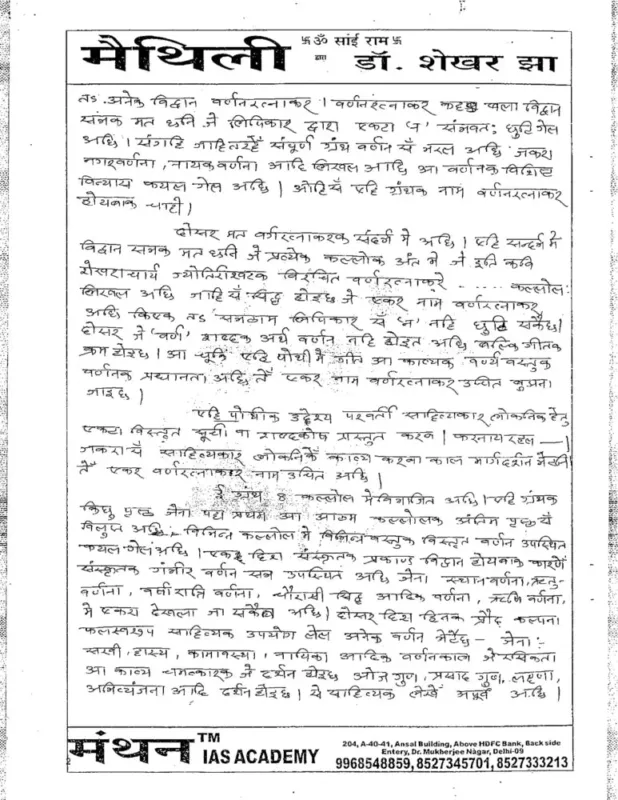 卐 ॐ सांई राम 卐
मैथिली द्वारा डॉ. शेखर झा
तs अनेक विद्वान वर्णनरत्नाकर । वर्णनरत्नाकर कहs वला विद्वान
सभक मत छनि जे लिपिकार द्वारा एकटा 'न' संभवतः छुटि गेल
अछि । संपूर्ण ग्रंथ वर्णन सँ भरल अछि जकरा
नगरवर्णना, नायकवर्णना आदि लिखल अछि आ वर्णनक विशिष्ट
विन्यास कयल गेल अछि । ओहिसँ एहि ग्रंथक नाम वर्णनरत्नाकर
होयबाक चाही ।
दोसर मत वर्णरत्नाकरक संदर्भ मे अछि । एहि सन्दर्भ मे
विद्वान सभक मत छनि जे प्रत्येक कल्लोल अंत मे जे इति कवि
शेखराचार्य ज्योतिरीश्वरक विरचित वर्णरत्नाकरे ...... कल्लोलः
लिखल अछि ताहि सँ सिद्ध होइछ जे एकर नाम वर्णरत्नाकर
अछि किएक तs सभठाम लिपिकार सँ 'न' नहि छुटि सकैछ ।
दोसर जे 'वर्ण' शब्दक अर्थ वर्णन नहि होइत अछि बल्कि गीतक
क्रम होइछ । आ चूँकि एहि पोथी मे गीत आ काव्यक वर्ण्य वस्तुक
वर्णनक प्रधानता अछि तेँ एकर नाम वर्णरत्नाकर उचित बुझना
जाइछ ।
एहि पोथीक उद्देश्य परवर्ती साहित्यकार लोकनिक हेतु
एकटा विस्तृत सूची वा शब्दकोष प्रस्तुत करब । करनाय रहल —
जकरा सँ साहित्यकार लोकनिकेँ काव्य करबा काल मार्गदर्शन भेटनि
तेँ एकर वर्णरत्नाकर नाम उचित अछि ।
ई ग्रंथ 8 कल्लोल मे विभाजित अछि । एहि ग्रंथक
किछु पृष्ठ जेना प्रथम आ आठम कल्लोलक अंतिम पृष्ठ सँ
विलुप्त अछि । विभिन्न कल्लोल मे विभिन्न वस्तुक विस्तृत वर्णन उपस्थित
कयल गेल अछि । एक दिश संस्कृतक प्रकाण्ड विद्वान होयबाक कारणेँ
संस्कृतक गंभीर वर्णन सब उपस्थित अछि जेना स्थान वर्णना, ऋतु-
वर्णना, वर्षा रात्रि वर्णना, चौरासी सिद्ध आदिक वर्णना, ऋषि वर्णना,
मे एकरा देखला जा सकैछ अछि । दोसर दिश हिनक प्रौढ़ कल्पना
फलस्वरूप साहित्यिक उपयोग लेल अनेक वर्णन भेटैछ – जेना :
सखी, हास्य, कामावस्था, नायिका आदिक वर्णनकाल जे रसिकता
आ काव्य चमत्कारक जे दर्शन होइछ ओज गुण, प्रसाद गुण, लक्षणा,
अभिव्यंजना आदि दर्शन होइछ । से साहित्यिक लेखेँ अपूर्व अछि ।
मंथन TM IAS ACADEMY
204, A-40-41, Ansal Building, Above HDFC Bank, Back side
Entery, Dr. Mukherjee Nagar, Delhi-09
9968548859, 8527345701, 8527333213